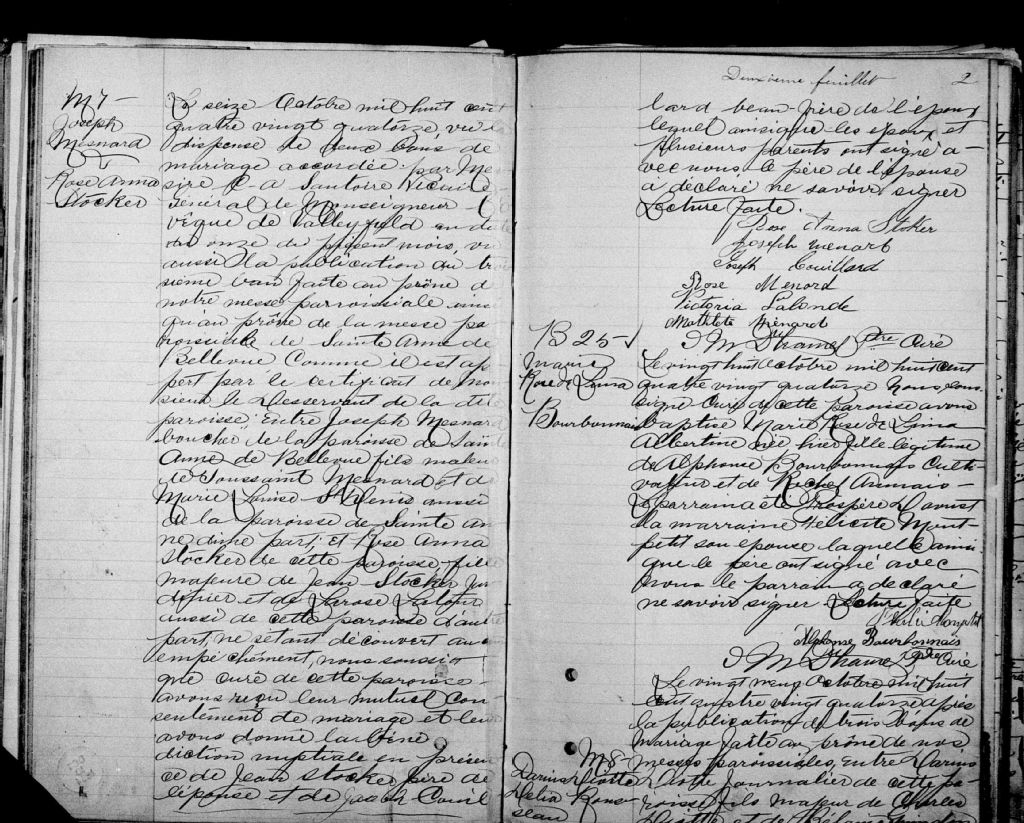 M 7 -
Joseph
Mesnard
&
Rose Anna
Stocker
Le seize Octobre mil huit cent
quatre vingt quatorze, vu la
dispense de deux bans de
mariage accordée par Mes
sire C-A Santoire Vicaire
Général de Monseigneur l'E
vêque de Valleyfield en date
du onze du présent mois, vu
aussi la publication du troi
sième ban faite au prône de
notre messe paroissiale ainsi
qu'au prône de la messe pa
roissiale de Sainte Anne de
Bellevue Comme il est ap
pert par le certificat de Mon
sieur le Desservant de la dite
paroisse: Entre Joseph Mesnard
boucher de la paroisse de Sainte
Anne de Bellevue fils majeur
de Toussaint Mesnard et de
Marie Louise St Denis aussi
de la paroisse de Sainte An
ne d'une part; Et Rose Anna
Stocker de cette paroisse fille
majeure de Jean Stocker
et de Larose Latour
aussi de cette paroisse d'autre
part, ne s'étant découvert aucun
empêchement, nous soussi
gné curé de cette paroisse
avons reçu leur mutuel con
sentement de mariage et leur
avons donné la béné
diction nuptiale en présen
ce de Jean Stocker père de
l'épouse et de Joseph Couil
Deuxième feuillet 2
lard beau-père de l'époux
lequel ainsi que les époux et
plusieurs parents ont signé a-
vec nous, le père de l'épouse
a déclaré ne savoir signer
Lecture faite.
Rose Anna Stoker
Joseph Menard
Joseph Couillard
Rose Menard
Victoria Lalonde
Mathilde Ménard
Ptre Curé
B 25 -
Marie
Rose de Lima
Bourbonnais
Le vingt huit Octobre mil huit cent
quatre vingt quatorze Nous sous-
signé Curé de cette paroisse avons
baptisé Marie Rose de Lima
Albertine née hier fille légitime
de Alphonse Bourbonnais Culti-
vateur et de
Le parrain a été Prospère Daoust
la marraine Félicité Mont-
petit son épouse laquelle ainsi
que le père ont signé avec
nous le parrain a déclaré
ne savoir signer Lecture faite
Alphonse Bourbonnais
Ptre Curé
M 8 -
Darius
Delia
Le vingt neuf Octobre mil huit
cent quatre vingt quatorze après
la publication de trois bans de
mariage faite au prône de nos
messes paroissiales, Entre Darius
journalier de cette pa-
roisse fils majeur de Charles